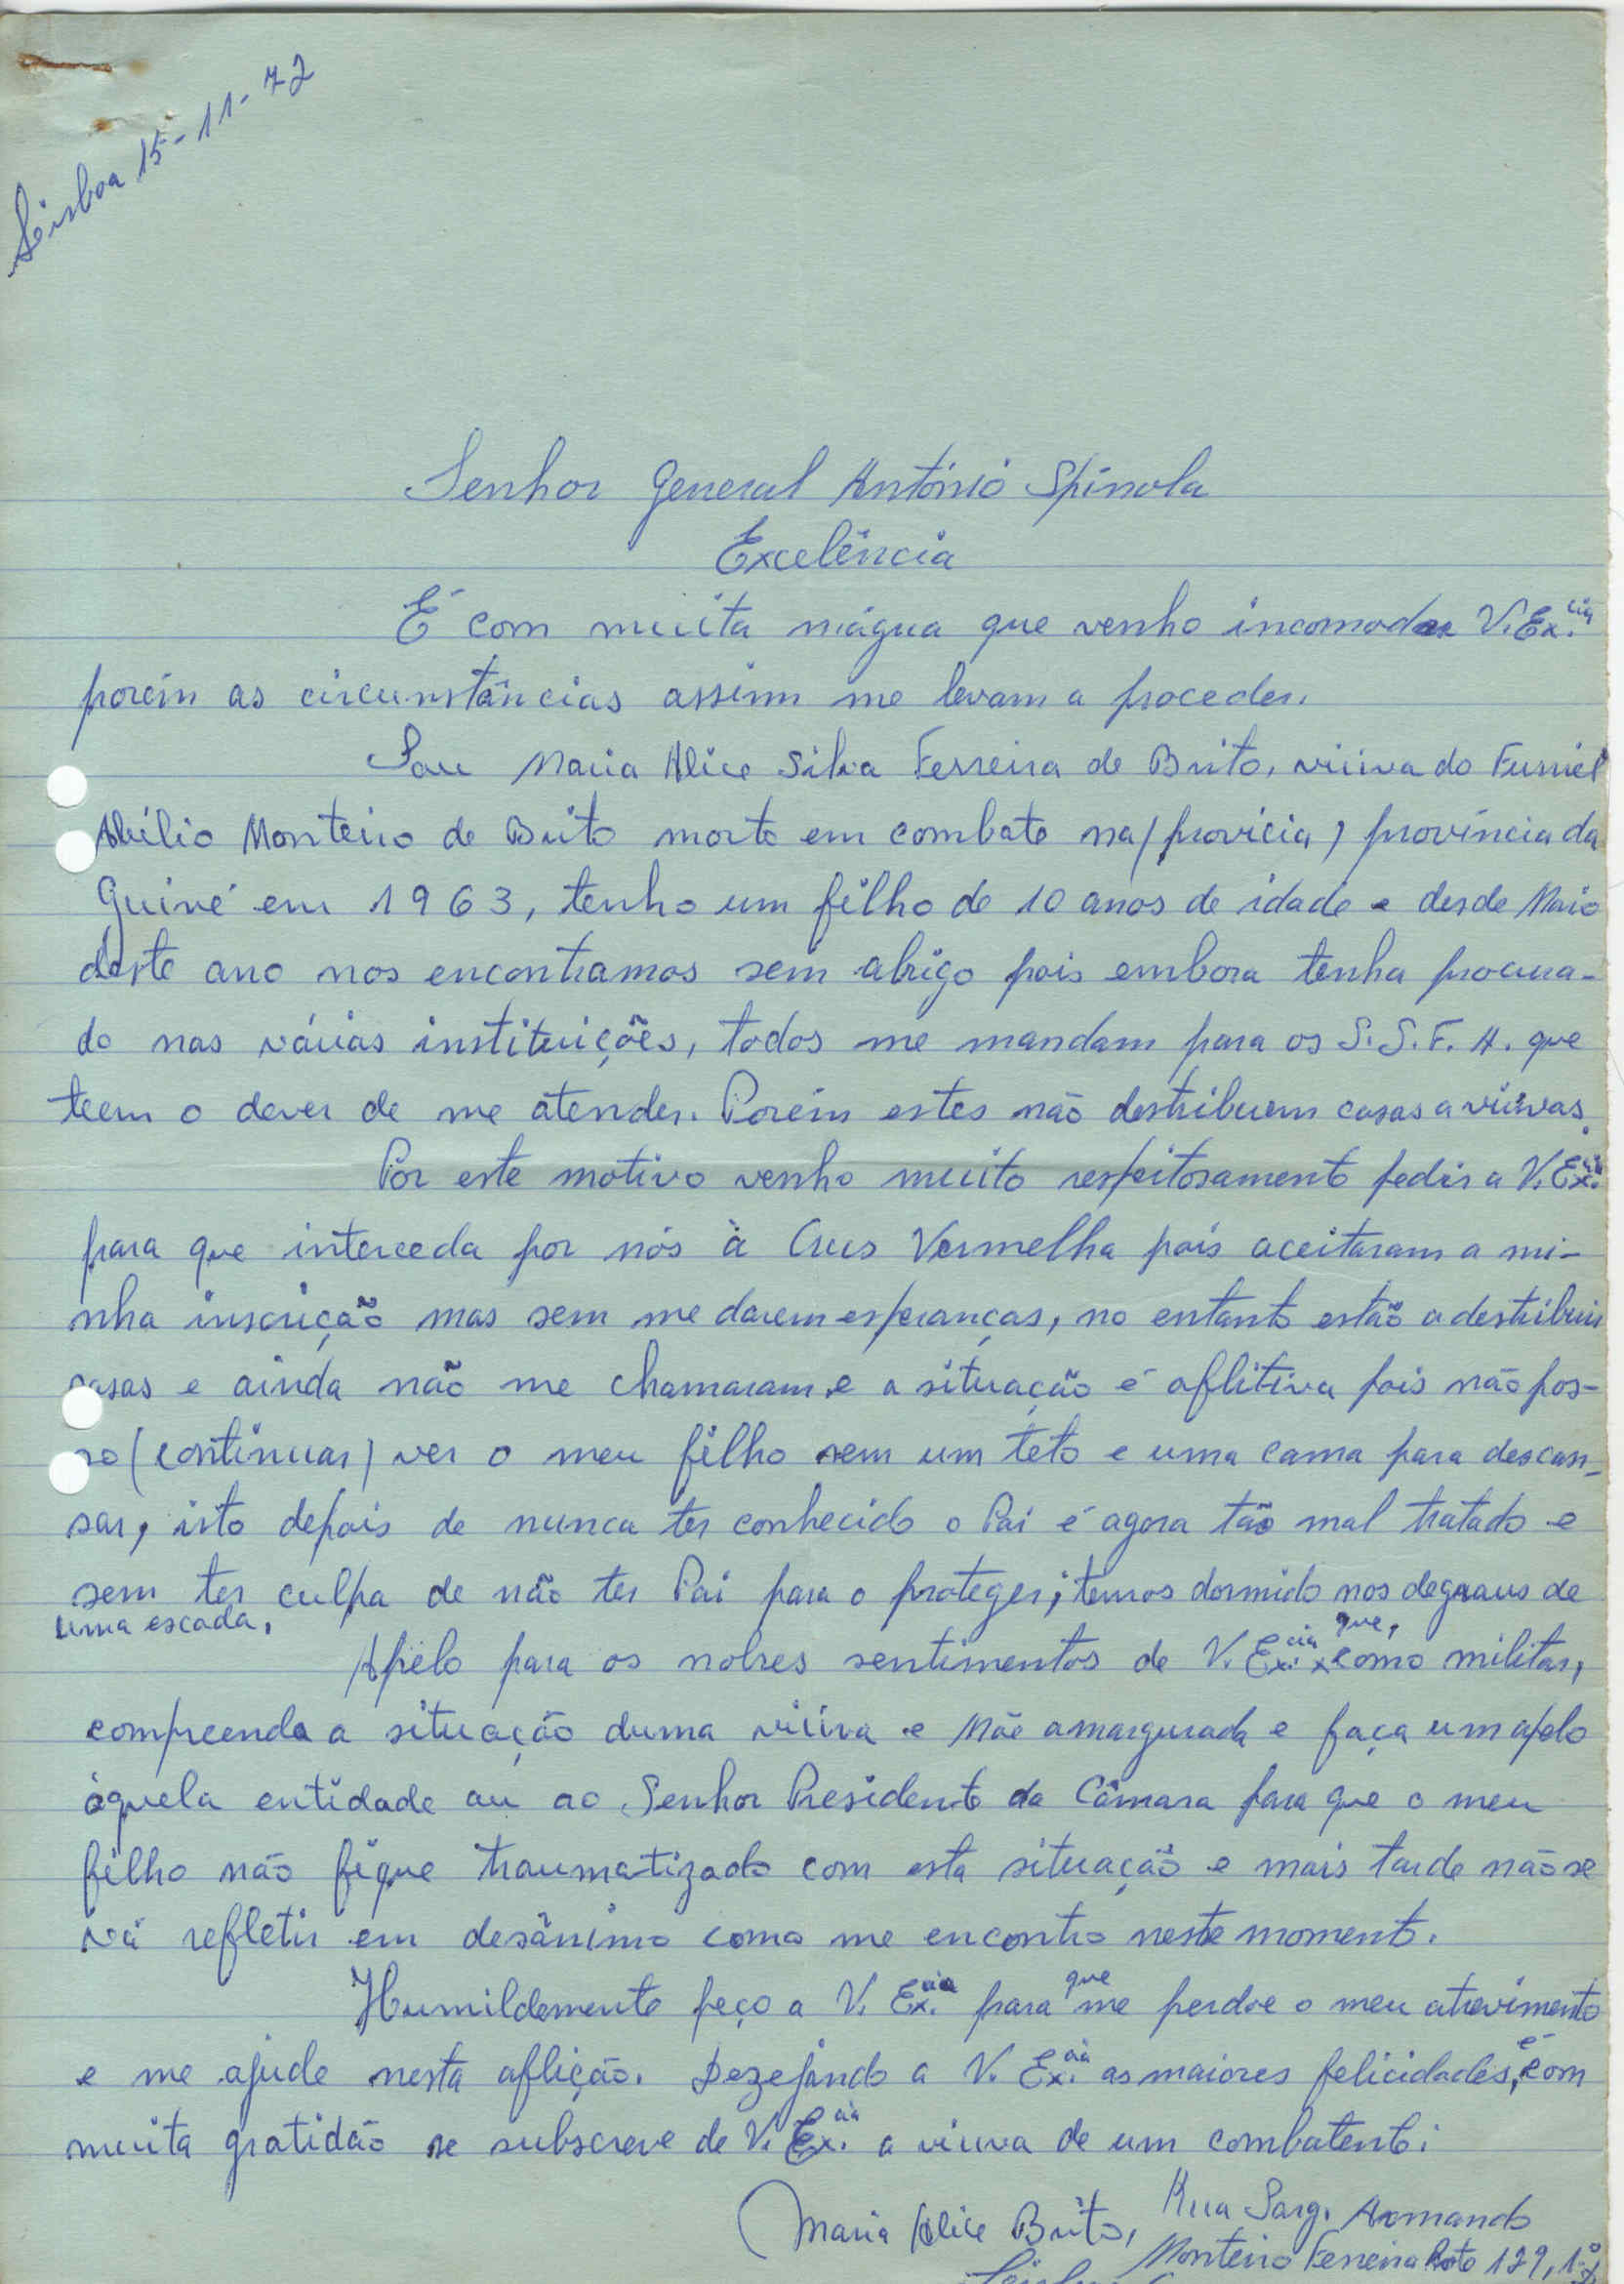 Lisboa 15-11-72
Senhor General António Spínola
Excelência
É com muita mágua que venho incomodar V. Ex.cia
porém as circunstâncias assim me levam a proceder.
Sou Maria Alice Silva Ferreira de Brito, viúva do Furriel
Abílio Monteiro de Brito morto em combate na (provicia) província da
Guiné em 1963, tenho um filho de 10 anos de idade e desde Maio
deste ano nos encontramos sem abrigo pois embora tenha procura-
do nas várias instituições, todos me mandam para os S.S.F.A. que
teem o dever de me atender. Porém estes não destribuem casas a viúvas.
Por este motivo venho muito respeitosamente pedir a V. Ex.cia
para que interceda por nós à Crus Vermelha pois aceitaram a mi-
nha inscrição mas sem me darem esperanças, no entanto estão a destribuir
casas e ainda não me chamaram e a situação é aflitiva pois não pos-
so (continuar) ver o meu filho sem um teto e uma cama para descan-
sar, isto depois de nunca ter conhecido o Pai é agora tão mal tratado e
sem ter culpa de não ter Pai para o proteger; temos dormido nos degraus de
uma escada.
Apelo para os nobres sentimentos de V. Ex.cia que, como militar,
compreenda a situação duma viúva e Mãe amargurada e faça um apelo
àquela entidade ou ao Senhor Presidente da Câmara para que o meu
filho não fique traumatizado com esta situação e mais tarde não se
vá refletir em desânimo como me encontro neste momento.
Humildemente peço a V. Ex.cia para que me perdoe o meu atrevimento
e me ajude nesta aflição. Dezejando a V. Ex.cia as maiores felicidades, é com
muita gratidão se subscreve de V. Ex.cia a viuva de um combatente:
Maria Alice Brito, Rua Sarg. Armando
Monteiro Ferreira 129, 1º